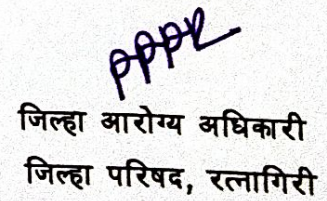 जिल्हा आरोग्य अधिकारी
जिल्हा परिषद, रत्नागिरी